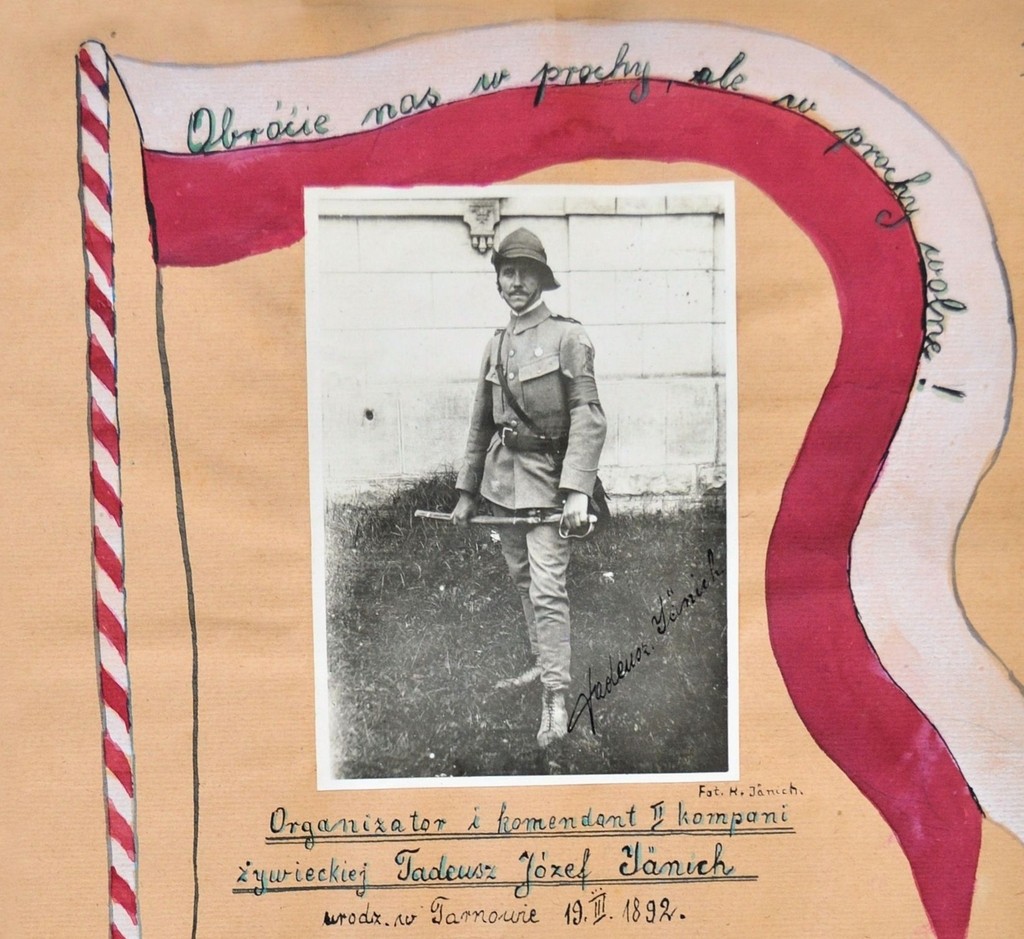 Obróćcie nas w prochy, ale w prochy wolne!
Tadeusz Jänich
Fot. K. Jänich.
Organizator i komendant II kompani
żywieckiej Tadeusz Józef Jänich
urodz. w Tarnowie 19. III. 1892.